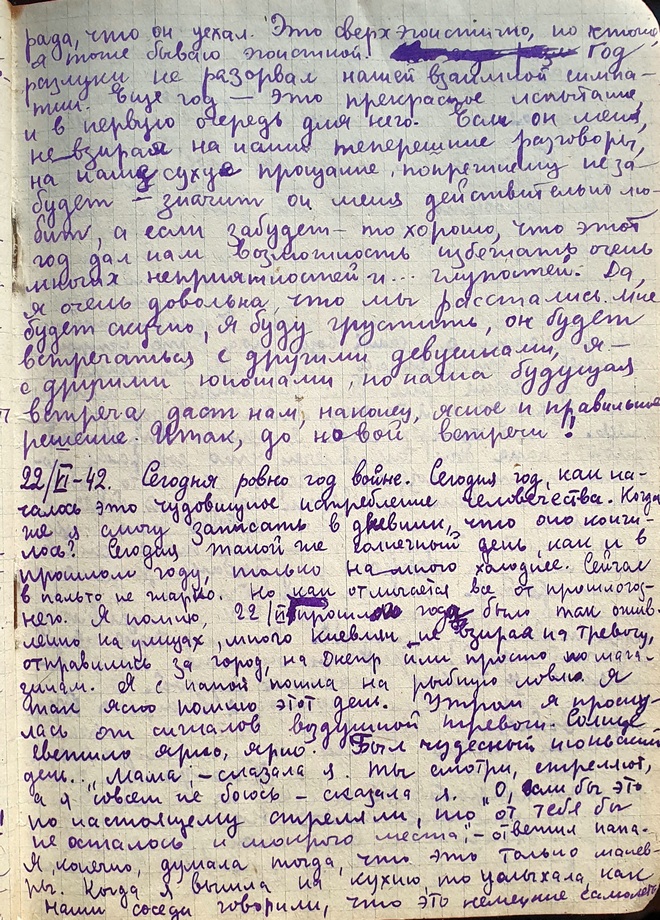 рада, что он уехал. Это сверхэгоистично, но
я тоже бываю эгоистной. Год
разлуки не разорвал нашей взаимной симпа-
тии. Еще год — это прекрасное испытание,
и в первую очередь для него. Если он меня,
не взирая на наши теперешние разговоры,
на наше сухое прощание, попрежнему не за-
будет — значит он меня действительно лю-
бит, а если забудет — то хорошо, что этот
год дал нам возможность избежать очень
многих неприятностей и... глупостей. Да,
я очень довольна, что мы расстались. Мне
будет скучно, я буду грустить, он будет
встречаться с другими девушками, я —
с другими юношами, но наша будущая
встреча даст нам, наконец, ясное и правильное
решение. Итак, до новой встречи!
22/VI-42. Сегодня ровно год войне. Сегодня год, как на-
чалось это чудовищное истребление человечества. Когда
же я смогу записать в дневник, что оно кончи-
лось? Сегодня такой же солнечный день, как и в
прошлом году, только на много холоднее. Сейчас
в пальто не жарко. Но как отличается все от прошлогод-
него. Я помню, 22/VI прошлого года было так ожив-
ленно на улицах, много киевлян, не взирая на тревогу,
отправились за город, на Днепр или просто по мага-
зинам. Я с папой пошла на рыбную ловлю. Я
так ясно помню этот день. Утром я просну-
лась от сигналов воздушной тревоги. Солнце
светило ярко, ярко. Был чудесный июньский
день. "Мама, — сказала я. Ты смотри, стреляют,
а я совсем не боюсь — сказала я. "О, если бы это
по настоящему стреляли, то от тебя бы
не осталось и мокрого места", — ответил папа.
Я, конечно, думала тогда, что это только манев-
ры. Когда я вышла на кухню то услыхала как
наши соседи говорили, что это немецкие самолеты